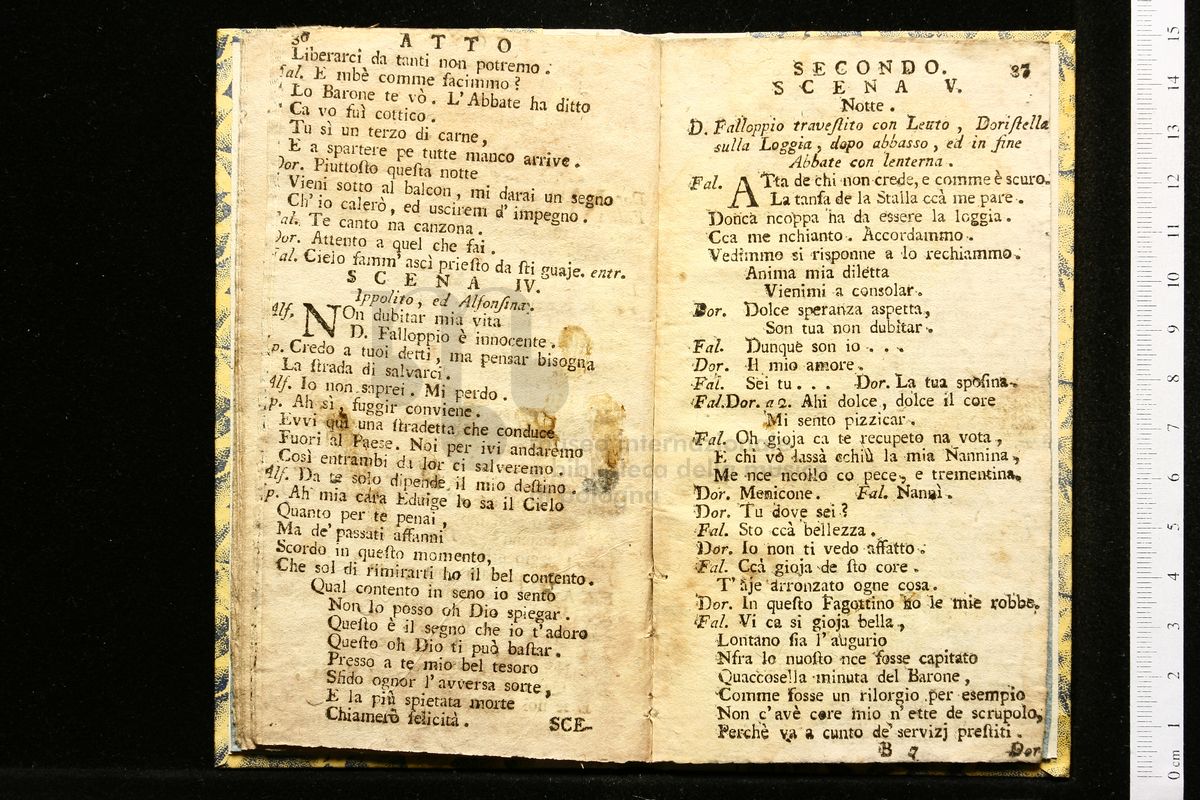 36 ATTO
Liberarci da tanti non potremo.
Fal. E mbè comme facimmo?
Lo Barone te vò. L'Abbate ha ditto
Ca vo fuì cottico.
Tu sì un terzo di carne,
E a spartere pe tutte manco arrive.
Dor. Piuttoſto queſta notte
Vieni sotto al balcon, mi darai un segno
Ch' io calerò, ed uscirem d' impegno.
Fal. Te canto na canzona.
Dor. Attento a quel che fai.
Fal. Cielo famm' ascì prieſto da ſti guaje. entr.
SCENA IV.
Ippolito, ed Alfonſina.
Alf. NOn dubitar mia vita
D. Falloppio è innocente.
p. Credo a tuoi detti, ma pensar bisogna
La ſtrada di salvarci.
Alf. Io non saprei. Mi perdo.
p. Ah sì, fuggir conviene.
Evvi quì una ſtradetta che conduce
Fuori al Paese. Noi per ivi andaremo
Così entrambi da lor ci salveremo.
Alf. Da te solo dipende il mio deſtino.
p. Ah mia cara Eduige lo sa il Cielo
Quanto per te penai,
Ma de' passati affanni
Scordo in queſto momento,
Che sol di rimirarti ho il bel contento.
Qual contento in seno io sento
Non lo posso oh Dio spiegar.
Queſto è il segno che io t'adoro
Queſto oh Dio ti può baſtar.
Presso a te mio bel tesoro
Sfido ognor l'avversa sorte,
E la più spietata morte
Chiamerò felicità.
SCE-
SECONDO. 37
SCENA V.
Notte.
D. Falloppio traveſtito con Leuto, Doriſtella
sulla Loggia, dopo abbasso, ed in fine
Abbate con lenterna.
Fal. ATta de chi non crede, e comme è scuro.
La tanfa de la Stalla ccà me pare.
Donca ncoppa ha da essere la loggia.
Cca me nchianto. Accordammo.
Vedimmo si risponne a lo rechiammo.
Anima mia diletta
Vienimi a consolar.
Dor. Dolce speranza aspetta,
Son tua non dubitar.
Fal. Dunque son io . . .
Dor. Il mio amore.
Fal. Sei tu . . . Dor. La tua sposina.
Fal.Dor. a 2. Ahi dolce, dolce il core
Mi sento pizzicar.
Fal. Oh gioja ca te recupeto na vota,
E chi vò lassà cchiù la mia Nannina,
Me nce ncollo co pece, e trementina.
Dor. Menicone. Fal. Nannì.
Dor. Tu dove sei?
Fal. Sto ccà bellezza.
Dor. Io non ti vedo affatto.
Fal. Ccà gioja de ſto core.
T' àje arronzato ogne cosa.
Dor. In queſto Fagottino ho le mie robbe.
Fal. Vi ca si gioja bella,
Lontano ſia l'augurio
Nfra lo nuoſto nce fosse capitato
Quaccosella minuta del Barone,
Comme fosse un rilorgio per esempio
Non c'avè core mio n'ette de scrupolo,
Perchè va a cunto de servizj preſtiti.
B 7 Dor
museo internazionale
e biblioteca della musica
di bologna
15
14
13
12
11
10
9
8
7
6
5
4
3
2
1
0 cm